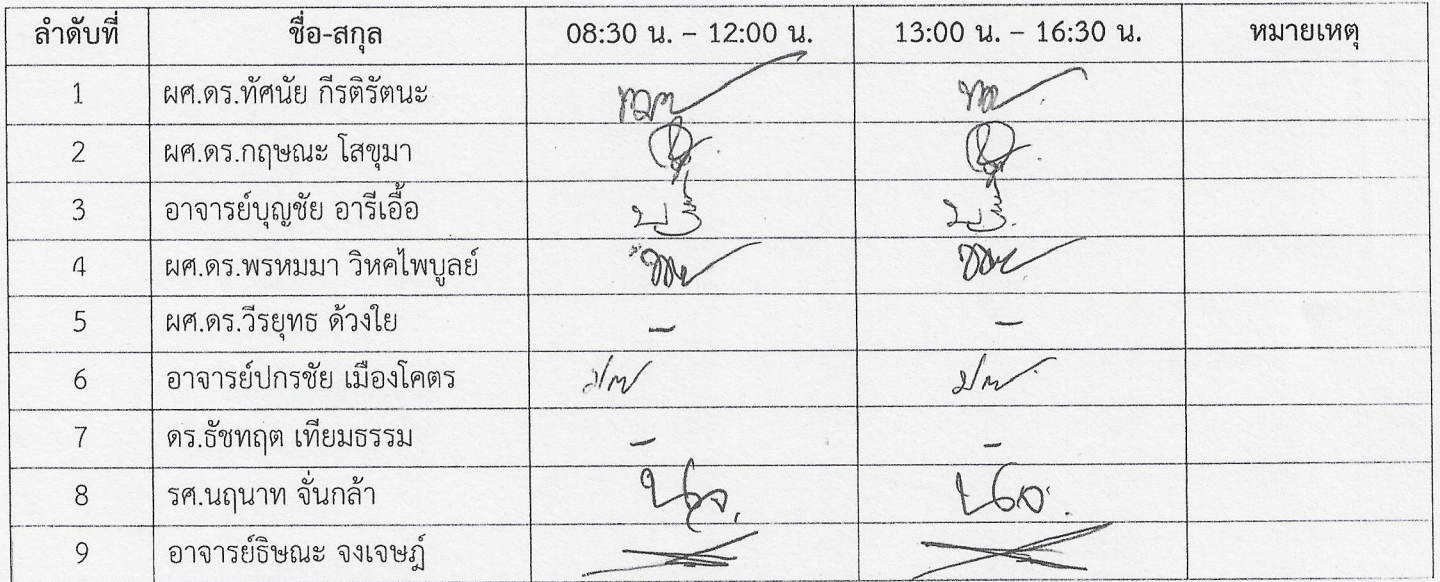 ลำดับที่ ชื่อ-สกุล 08:30 น. – 12:00 น. 13:00 น. – 16:30 น. หมายเหตุ
1 ผศ.ดร.ทัศนัย กีรติรัตนะ
2 ผศ.ดร.กฤษณะ โสขุมา
3 อาจารย์บุญชัย อารีเอื้อ
4 ผศ.ดร.พรหมมา วิหคไพบูลย์
5 ผศ.ดร.วีรยุทธ ด้วงใย – –
6 อาจารย์ปกรชัย เมืองโคตร
7 ดร.ธัชทฤต เทียมธรรม – –
8 รศ.นฤนาท จั่นกล้า
9 อาจารย์ธิษณะ จงเจษฎ์